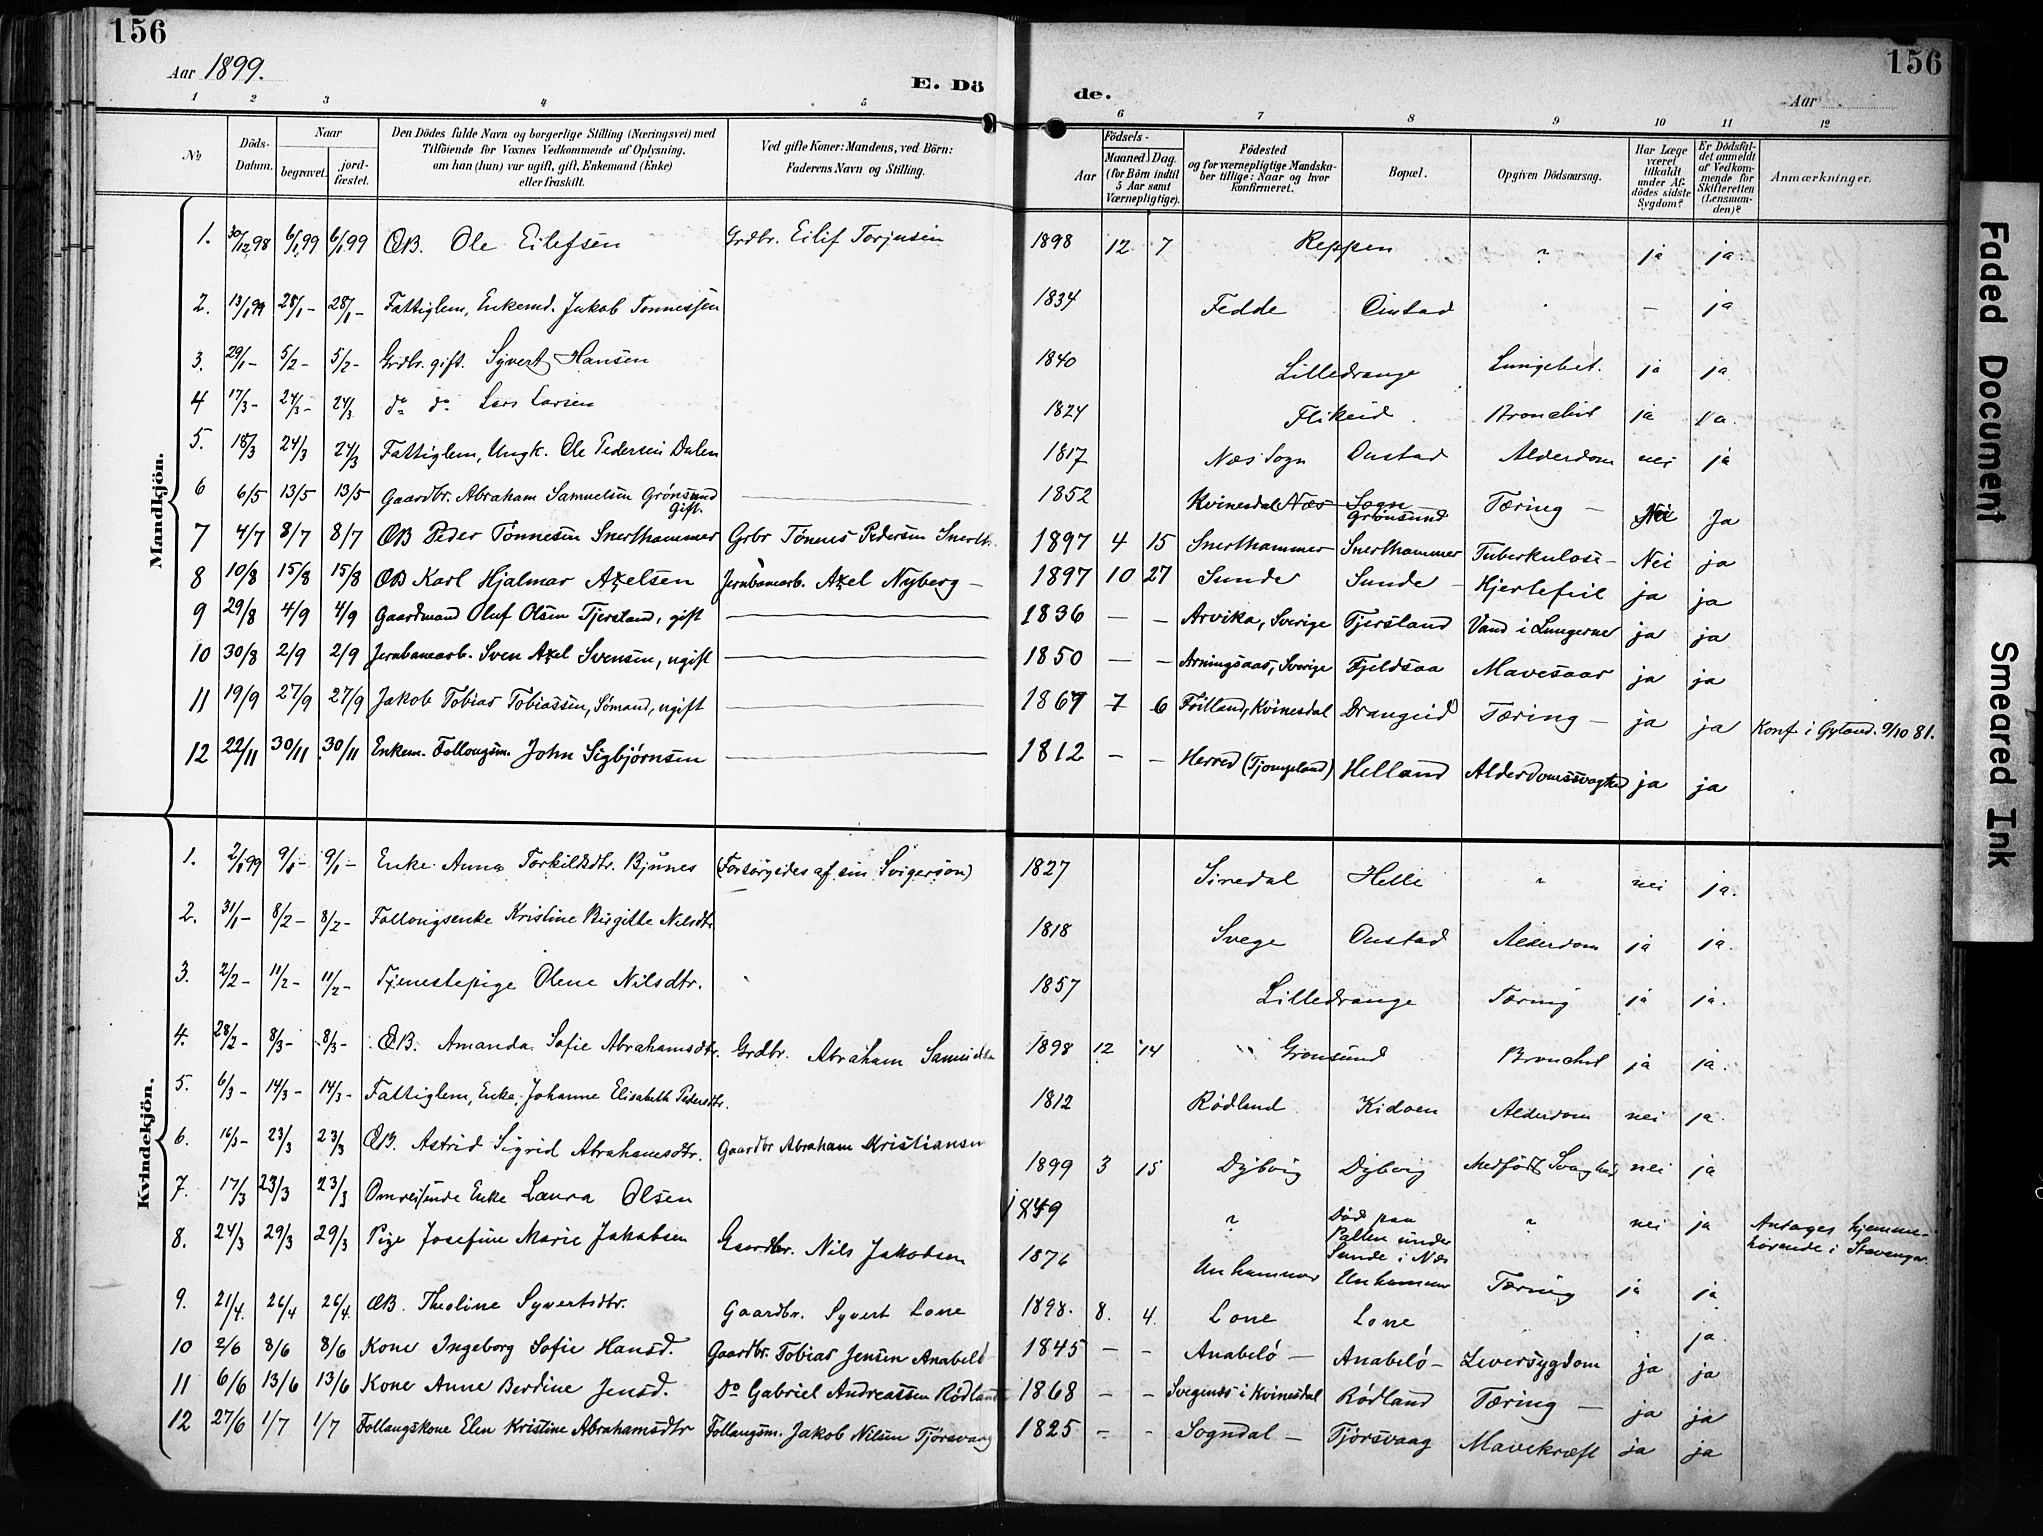 156
156
Aar 1899.
E. Dö
de.
Aar
1 2 3 4 5 6 7 8 9 10 11 12
No
Döds-Datum.
Naar
begravet.
jord-fæstet.
Den Dödes fulde Navn og borgerlige Stilling (Næringsvei) med
Tilföiende for Voxnes Vedkommende af Oplysning,
om han (hun) var ugift, gift, Enkemand (Enke)
eller fraskilt.
Ved gifte Koner: Mandens, ved Börn:
Faderens Navn og Stilling.
Födsels-
Aar
Maaned. Dag.
(for Börn indtil
5 Aar samt
Værnepligtige).
Födested
og for værnepligtige Mandska-
ber tillige: Naar og hvor
konfirmeret.
Bopæl.
Opgiven Dödsaarsag.
Har Læge
været
tilkaldt
under Af-
dödes sidste
Sygdom?
Er Dödsfal-
det anmeldt
af Vedkom-
mende for
Skifteretten
(Lensman-
den)?
Anmærkninger.
Mandkjön.
1. 30/12 98 6/1 99 6/1 99 ÆB. Ole Eilefsen Grdbr. Eilif Torjusen 1898 12 7 Reppen " ja ja
2. 13/1 99 28/1 - 28/1 - Fattiglem, Enkemd. Jakob Tønnessen 1834 Fedde Oustad " — ja
3. 29/1 - 5/2 - 5/2 - Grdbr. gift. Syvert Hansen 1840 Lilledrange Lungebet. ja ja
4 17/3 - 24/3 - 24/3 do do Lars Larsen 1824 Flikeid Bronchit ja ja
5. 18/3 24/3 24/3 Fattiglem, Ungk. Ole Pedersen Dalen 1817 Næs Sogn Oustad Alderdom nei ja
6 6/5 13/5 13/5 Gaardbr. Abraham Samuelsen Grønsund gift. 1852 Kvinesdal Næs Sogn Grønsund Tæring — Nei Ja
7 4/7 8/7 8/7 ÆB Peder Tønnesen Snerthammer Grbr Tønnes Pedersen Snerth. 1897 4 15 Snerthammer Snerthammer Tuberkulose - Nei ja
8 10/8 15/8 15/8 ÆB Karl Hjalmar Axelsen Jernbanearb. Axel Nyberg — 1897 10 27 Sunde Sunde - Hjertefeil ja ja
9 29/8 4/9 4/9 Gaardmand Oluf Olsen Tjersland, gift 1836 — — Arvika, Sverige Tjersland Vand i Lungerne ja ja
10 30/8 2/9 2/9 Jernbanearb. Sven Axel Svensen, ugift 1850 — — Arningsaas, Sverige Fjeldsaa Mavesaar ja ja
11 19/9 27/9 27/9 Jakob Tobias Tobiassen, Sømand, ugift 1867 7 6 Føilland, Kvinesdal Drangeid Tæring — ja ja Konf i Gyland. 9/10 81.
12 22/11 30/11 30/11 Enkem. Follaugsm. John Sigbjørnsen 1812 — — Herred (Tjomseland) Helland Alderdomssvaghed ja ja
Kvindekjön.
1. 2/1 99 9/1 - 9/1 - Enke Anna Torkildsdtr. Bjunes (Forsørgedes af sin Svigersøn) 1827 Siredal Helle " nei ja.
2. 31/1 - 8/2 - 8/2 - Follougsenke Kristine Birgitte Nilsdtr. 1818 Svege Oustad Alderdom ja ja.
3. 2/2 - 11/2 - 11/2 - Tjenestepige Olene Nilsdtr. 1857 Lilledrange Tæring ja ja.
4. 28/2 - 8/3 - 8/3 - ÆB. Amanda Sofie Abrahamsdtr. Grdbr. Abraham Samuelsen 1898 12 14 Grønsund Bronchit ja ja.
5. 6/3 - 14/3 - 14/3 - Fattiglem, Enke, Johanne Elisabeth Pedersdtr. 1812 Rødland Kidoen Alderdom nei ja.
6. 16/3 - 23/3 23/3 ÆB. Astrid Sigrid Abrahamsdtr. Gaardbr Abraham Kristiansen 1899 3 15 Dybvig Dybvig Medfødt Svaghed nei ja
7. 17/3 23/3 23/3 Omreisende Enke Laura Olsen 1849 " Død paa Pallen under Sunde i Næs " nei ja Antages hjemme-hørende i Stavanger.
8. 24/3 29/3 29/3 Pige Josefine Marie Jakobsen Gaardbr. Nils Jakobsen 1876 Unhammer Unhammer Tæring ja ja
9. 21/4. 26/4 26/4 ÆB. Theoline Syvertsdtr. Gaardbr. Syvert Lone 1898. 8. 4. Lone Lone ja
10 2/6 8/6 8/6 Kone Ingeborg Sofie Hansd. Gaardbr. Tobias Jensen Anabelø 1845 — - Anabelø — Anabelø - Leversygdom ja ja
11 6/6 13/6 13/6 Kone Anne Berdine Jensd. Do Gabriel Andreassen Rødland 1868 — - Svegenes i Kvinesdal Rødland Tæring — ja ja
12 27/6 1/7 1/7 Follaugskone Elen Kristine Abrahamsdtr Follaugsm. Jakob Nilsen Tjørsvaag 1825 - - Sogndal — Tjørsvaag Mavekræft ja ja
Faded Document
Smeared Ink